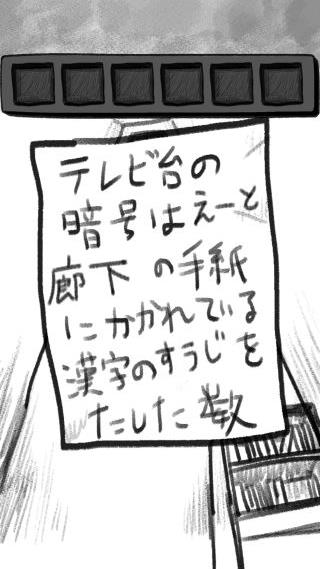 テレビ台の
暗号はえーと
廊下の手紙
にかかれている
漢字のすうじを
たした数